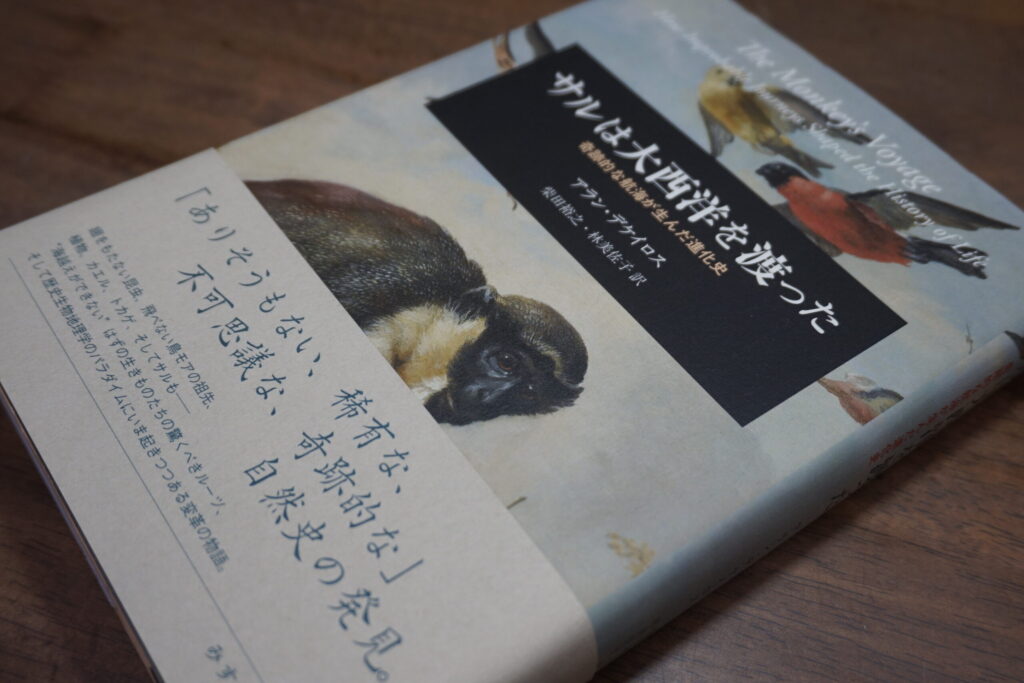 The Monkey's Voyage
How Improbable Journeys Shaped the History of Life
サルは大西洋を渡った
奇跡的な航海が生んだ進化史
アラン・デケイロス
柴田裕之・林美佐子 訳
「ありそうもない、稀有な、
不可思議な、奇跡的な」
自然史の発見。
翅をもたない昆虫、飛べない鳥モアの祖先、
植物、カエル、トカゲ、そしてサルも——
“海越えができない”はずの生きものたちの驚くべきルーツ、
そして歴史生物地理学のパラダイムにいま起きつつある変革の物語。
みす